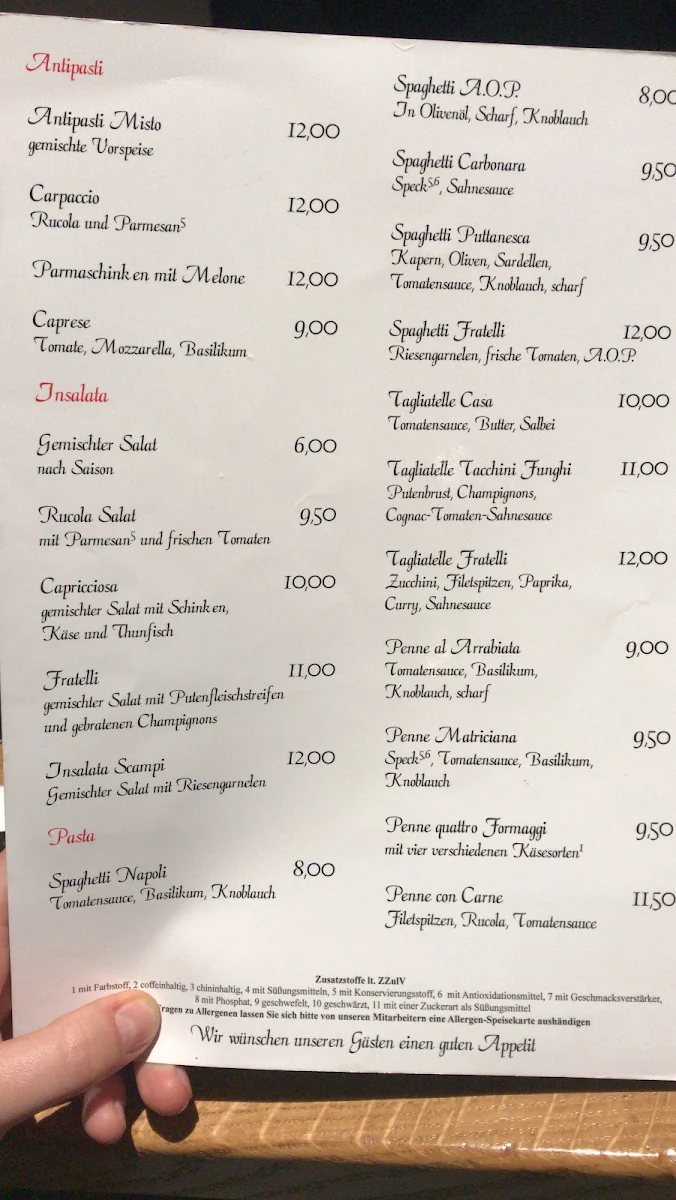 Antipasti
Antipasti Misto 12,00
gemischte Vorspeise
Carpaccio 12,00
Rucola und Parmesan⁵
Parmaschinken mit Melone 12,00
Caprese 9,00
Tomate, Mozzarella, Basilikum
Insalata
Gemischter Salat 6,00
nach Saison
Rucola Salat 9,50
mit Parmesan⁵ und frischen Tomaten
Capricciosa 10,00
gemischter Salat mit Schinken,
Käse und Thunfisch
Fratelli 11,00
gemischter Salat mit Putenfleischstreifen
und gebratenen Champignons
Insalata Scampi 12,00
Gemischter Salat mit Riesengarnelen
Pasta
Spaghetti Napoli 8,00
Tomatensauce, Basilikum, Knoblauch
Spaghetti A.O.P. 8,00
In Olivenöl, Scharf, Knoblauch
Spaghetti Carbonara 9,50
Speck⁵,⁶, Sahnesauce
Spaghetti Puttanesca 9,50
Kapern, Oliven, Sardellen,
Tomatensauce, Knoblauch, scharf
Spaghetti Fratelli 12,00
Riesengarnelen, frische Tomaten, A.O.P.
Tagliatelle Casa 10,00
Tomatensauce, Butter, Salbei
Tagliatelle Tacchini Funghi 11,00
Putenbrust, Champignons,
Cognac-Tomaten-Sahnesauce
Tagliatelle Fratelli 12,00
Zucchini, Filetspitzen, Paprika,
Curry, Sahnesauce
Penne al Arrabiata 9,00
Tomatensauce, Basilikum,
Knoblauch, scharf
Penne Matriciana 9,50
Speck⁵,⁶, Tomatensauce, Basilikum,
Knoblauch
Penne quattro Formaggi 9,50
mit vier verschiedenen Käsesorten¹
Penne con Carne 11,50
Filetspitzen, Rucola, Tomatensauce
Zusatzstoffe lt. ZZulV
1 mit Farbstoff, 2 coffeinhaltig, 3 chininhaltig, 4 mit Süßungsmitteln, 5 mit Konservierungsstoff, 6 mit Antioxidationsmittel, 7 mit Geschmacksverstärker,
8 mit Phosphat, 9 geschwefelt, 10 geschwärzt, 11 mit einer Zuckerart als Süßungsmittel
ragen zu Allergenen lassen Sie sich bitte von unseren Mitarbeitern eine Allergen-Speisekarte aushändigen
Wir wünschen unseren Gästen einen guten Appetit